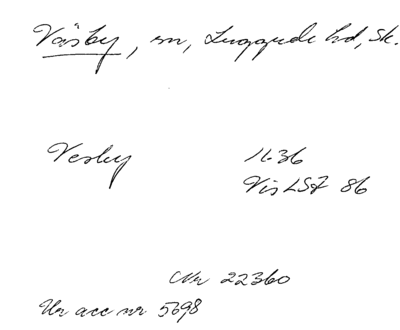 Väsby, sn, Luggude hd, Sk.
Vesby 1636
Vis LSF 86
Nr 22360
Ur acc nr 5698